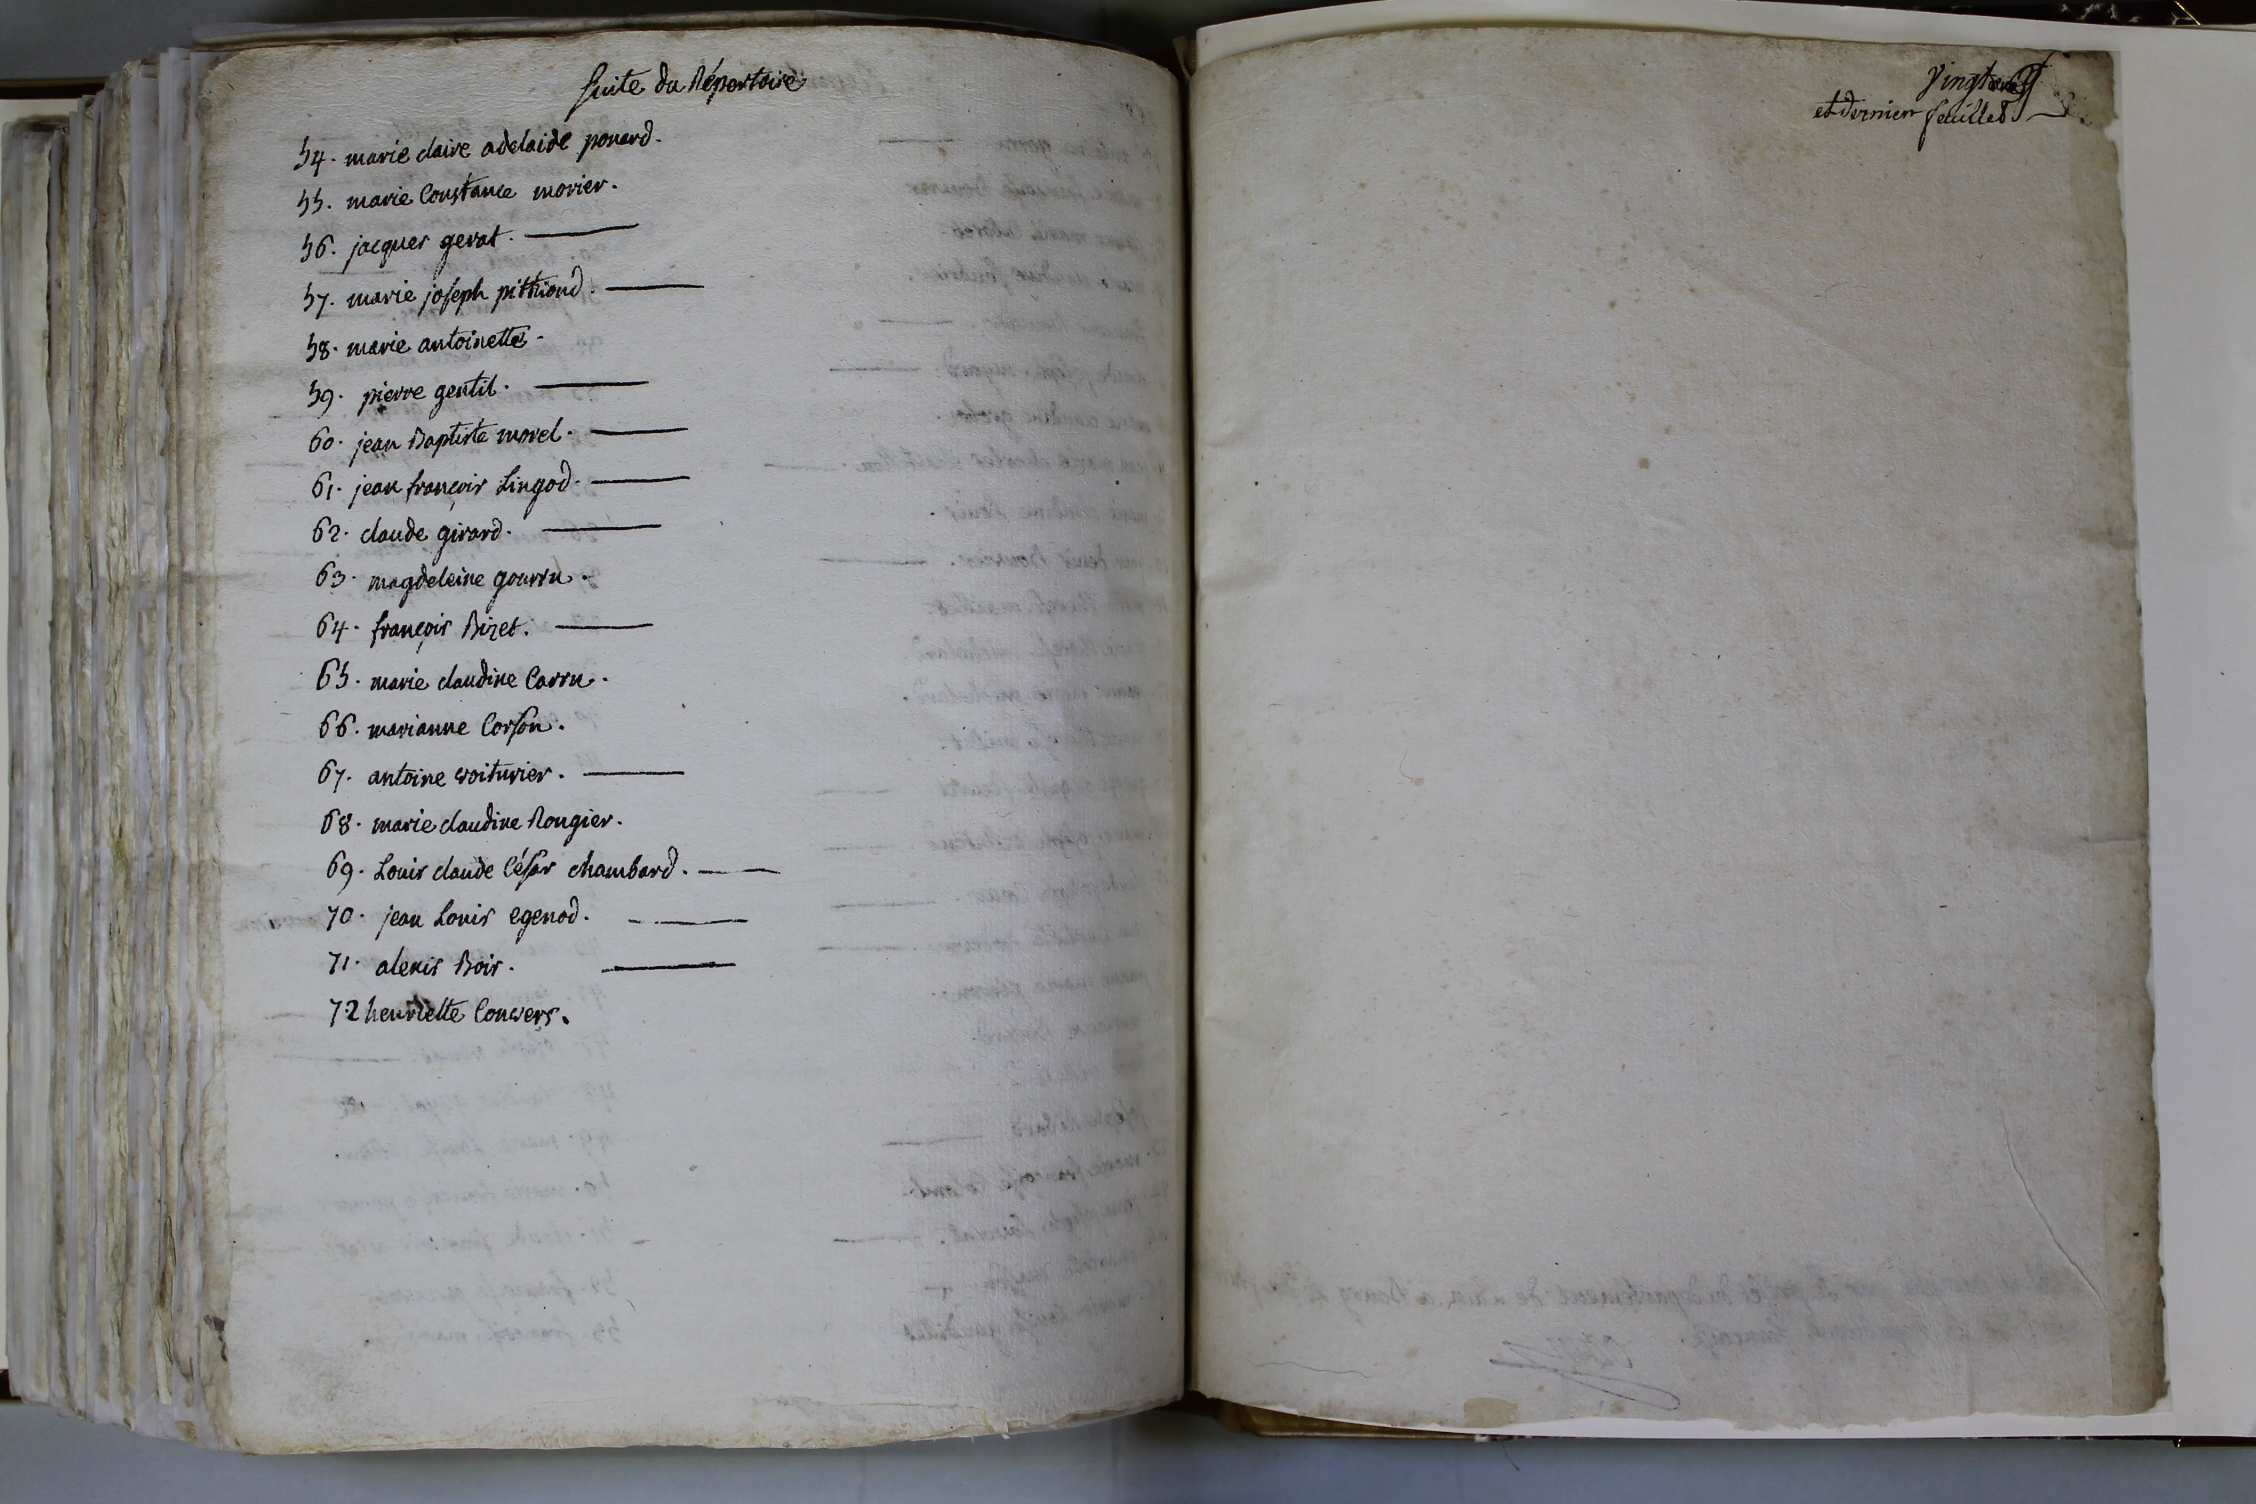 Suite du Répertoire
54. marie claire adelaide ponard.
55. marie Constance morier.
56. jacques gerat.
57. marie joseph pithiond.
58. marie antoinette.
59. pierre gentil.
60. jean Baptiste morel.
61. jean françois Lingod.
62. claude girard.
63. magdeleine gourru.
64. françois Bizet.
65. marie claudine Carru.
66. marianne Corson.
67. antoine voiturier.
68. marie claudine Rougier.
69. Louis claude César chambard.
70. jean Louis egenod.
71. alexis Bois.
72 henriette Convers.
et dernier feuillet